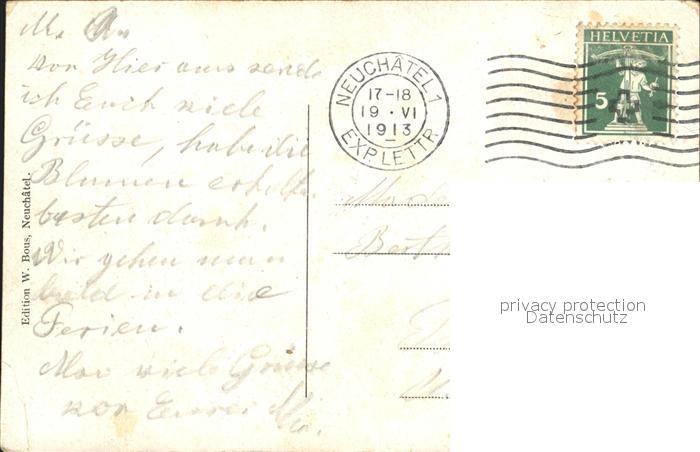 von Hier aus sende
ich Euch viele
Grüsse, habe die
Blumen erhalten
besten dank.
Wir gehen nun
bald in die
Ferien.
viele Grüsse
von
Edition W. Bous, Neuchâtel.
NEUCHÂTEL 1
17-18
19 · VI
1913
EXP. LETTR.
HELVETIA
5
privacy protection
Datenschutz